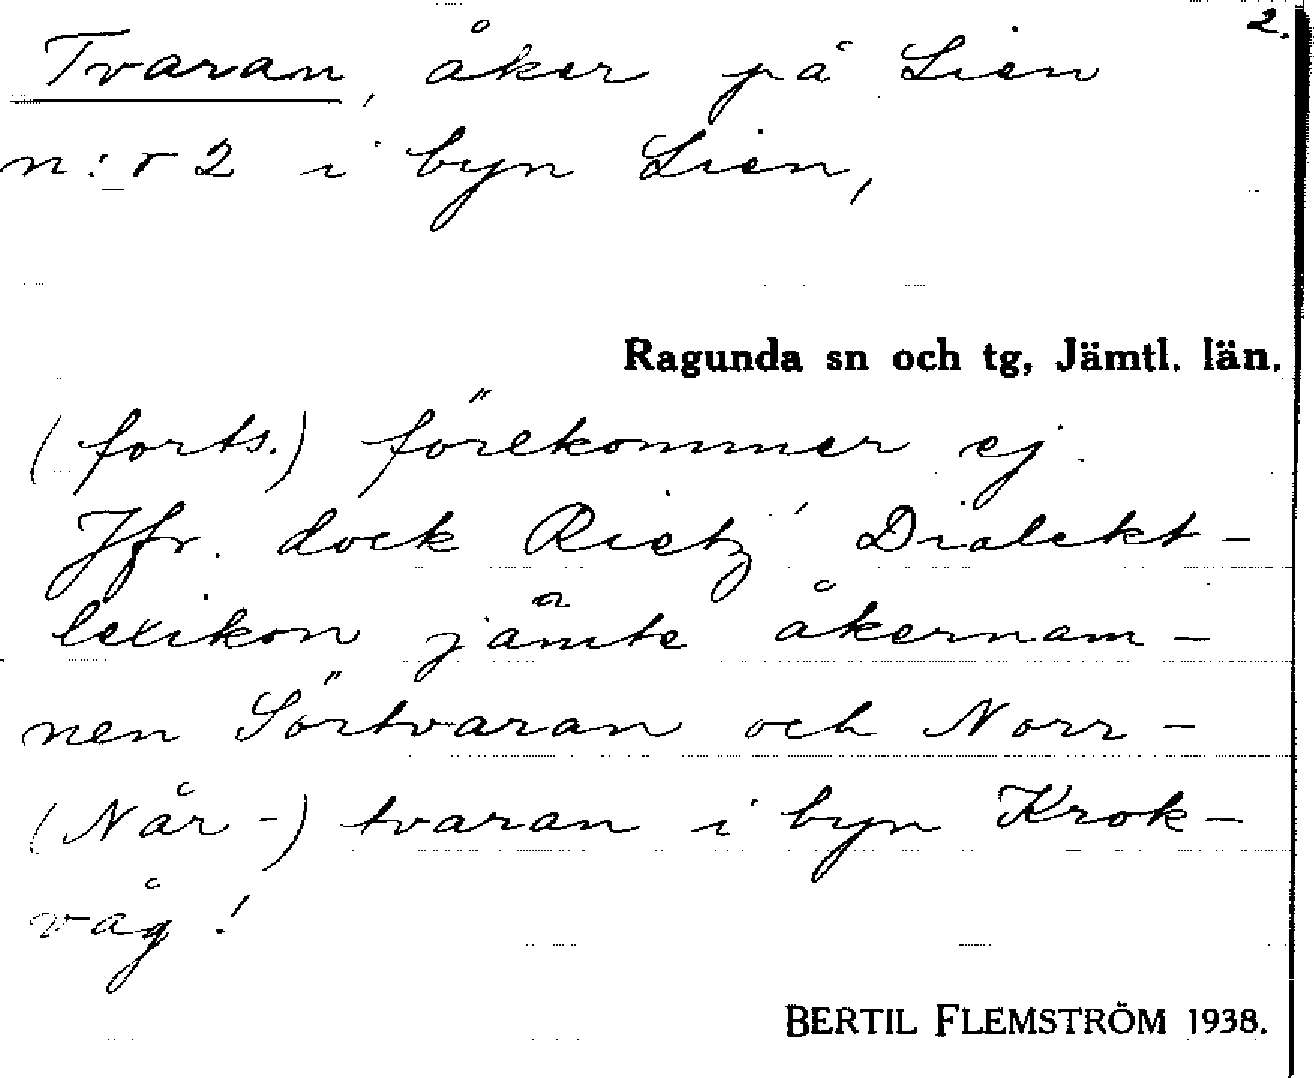 2.
Tvaran, åker på Lien
n:r 2 i byn Lien,
Ragunda sn och tg, Jämtl. län.
(forts.) förekommer ej.
Jfr. dock Rietz' Dialekt-
lexikon jämte åkernam-
nen Sörtvaran och Norr-
(Når-) tvaran i byn Krok-
våg!
BERTIL FLEMSTRÖM 1938.